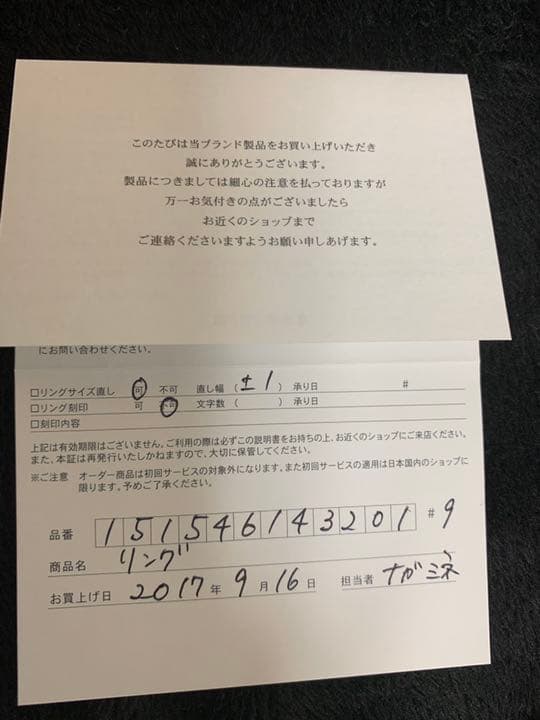 このたびは当ブランド製品をお買い上げいただき
誠にありがとうございます。
製品につきましては細心の注意を払っておりますが
万一お気付きの点がございましたら
お近くのショップまで
ご連絡くださいますようお願い申しあげます。
にお問い合わせください。
□リングサイズ直し 可 不可 直し幅 ( ±1 ) 承り日 #
□リング刻印 可 不可 文字数 ( ) 承り日
□刻印内容
上記は有効期限はございません。ご利用の際は必ずこの説明書をお持ちの上、お近くのショップにご来店ください。
また、本証は再発行いたしかねますので、大切に保管してください。
※ご注意 オーダー商品は初回サービスの対象外になります。また初回サービスの適用は日本国内のショップに
限ります。予めご了承ください。
品番 151546143201 #9
商品名 リング
お買上げ日 2017年9月16日 担当者 ナガミネ